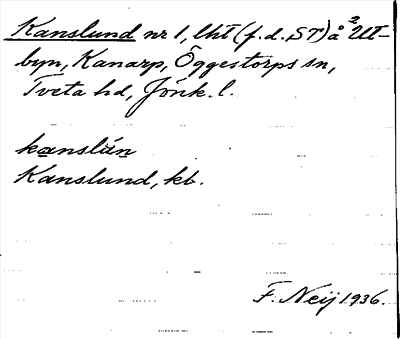 Kanslund nr 1, lht (f.d. ST) å ²Ut-
byn, Kanarp, Öggestorps sn,
Tveta hd, Jönk. l.
kanslùn
Kanslund, kb.
F. Neij 1936.